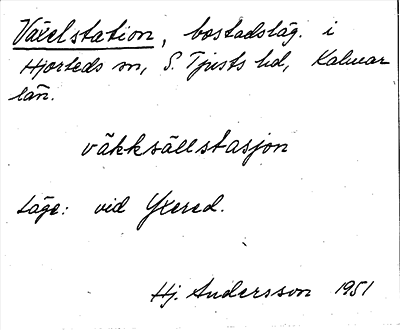 Växelstation, bostadsläg. i
Hjorteds sn, S. Tjusts hd, Kalmar
län.
väkksällstasjon
Läge: vid Yxered.
Hj. Andersson 1951